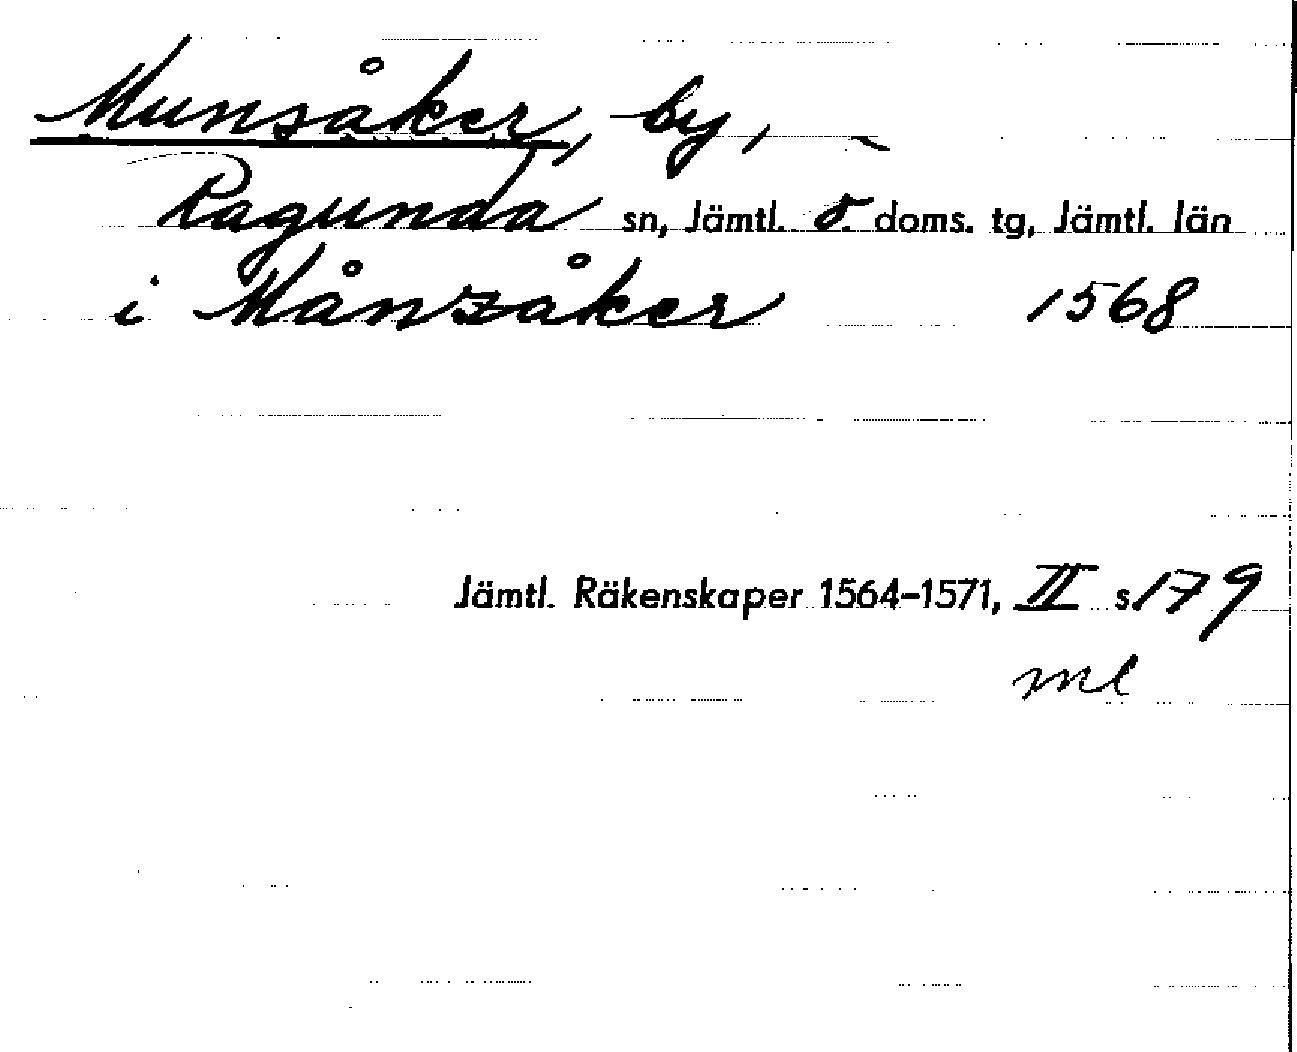 Munsåker, by,
Ragunda sn, Jämtl. ö. doms. tg, Jämtl. län
i Månzåker 1568
Jämtl. Räkenskaper 1564-1571, II s. 179
ml